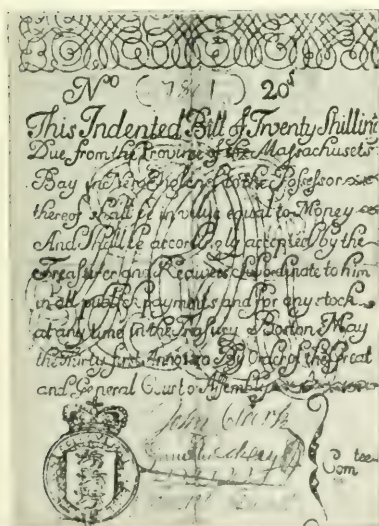 Nº (781) 20s
This Indented Bill of Twenty Shillings
Due from the Province of the Massachusets
Bay in New England to the Possessor
thereof shall be in value equal to Money
And Shall be accordingly accepted by the
Treasurer and Receivers Subordinate to him
in all publick payments and for any stock
at any time in the Treasury Boston May
the Thirty first Anno By Order of the Great
and General Court or Assembly
John Clark
Com tee